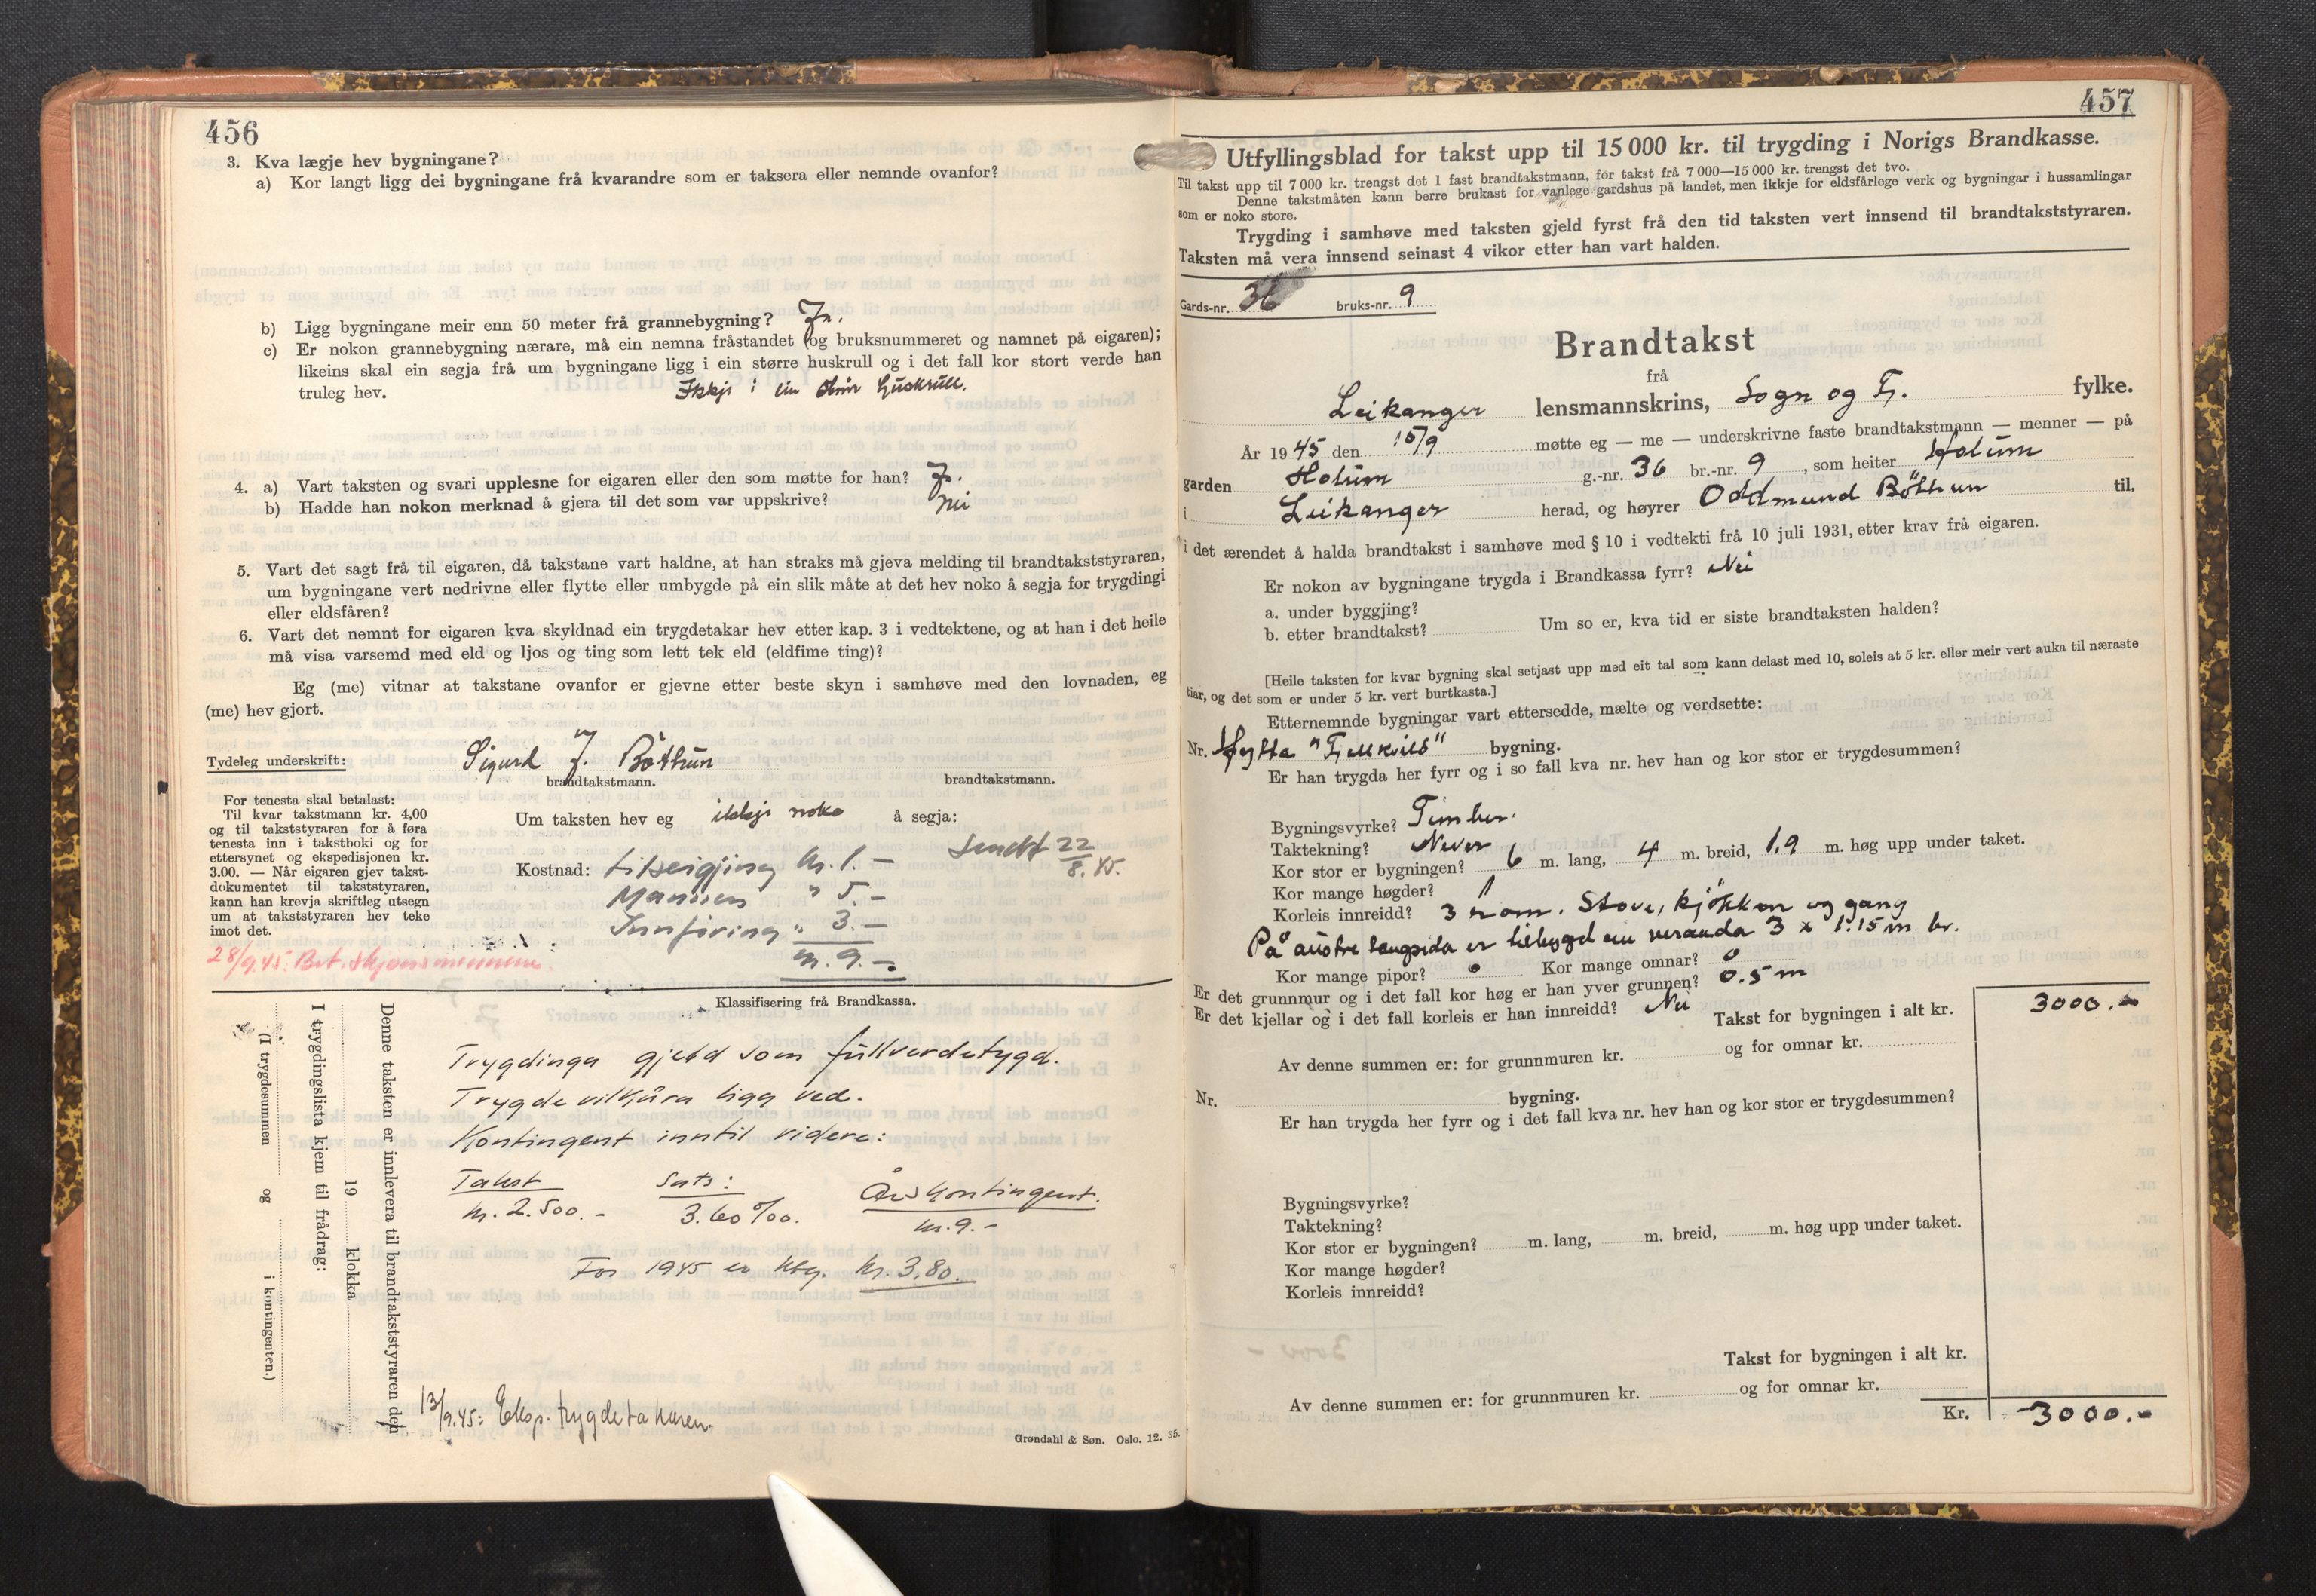 456
3. Kva lægje hev bygningane?
a) Kor langt ligg dei bygningane frå kvarandre som er taksera eller nemnde ovanfor?
b) Ligg bygningane meir enn 50 meter frå grannebygning? Ja.
c) Er nokon grannebygning nærare, må ein nemna fråstandet (og bruksnummeret og namnet på eigaren);
likeins skal ein segja frå um bygningane ligg i ein større huskrull og i det fall kor stort verde han
truleg hev. Ikkje i ein større huskrull.
4. a) Vart taksten og svari upplesne for eigaren eller den som møtte for han? Ja.
b) Hadde han nokon merknad å gjera til det som var uppskrive? Nei
5. Vart det sagt frå til eigaren, då takstane vart haldne, at han straks må gjeva melding til brandtakststyraren,
um bygningane vert nedrivne eller flytte eller umbygde på ein slik måte at det hev noko å segja for trygdingi
eller eldsfåren?
6. Vart det nemnt for eigaren kva skyldnad ein trygdetakar hev etter kap. 3 i vedtektene, og at han i det heile
må visa varsemd med eld og ljos og ting som lett tek eld (eldfime ting)?
Eg (me) vitnar at takstane ovanfor er gjevne etter beste skyn i samhøve med den lovnaden, eg
(me) hev gjort.
Tydeleg underskrift: Sigurd J. Bøthun
brandtakstmann. brandtakstmann.
For tenesta skal betalast:
Til kvar takstmann kr. 4,00
og til takststyraren for å føra
tenesta inn i takstboki og for
ettersynet og ekspedisjonen kr.
3.00. — Når eigaren gjev takst-
dokumentet til takststyraren,
kann han krevja skriftleg utsegn
um at takststyraren hev teke
imot det.
Um taksten hev eg ikkje noko å segja:
Sendt 22/8.45.
Kostnad: Tilseigjing kr. 1.-
Mannen " 5.-
Innføring " 3.-
kr. 9.-
28/9.45. Bet. skjønsmennene.
Klassifisering frå Brandkassa.
Trygdinga gjeld som fullverdetygd.
Trygdevilkåra ligg ved.
Kontingent inntil videre:
Takst Sats: Årskontingent.
kr. 2.500.- 3.60 ‰. kr. 9.-
For 1945 er ktg. kr. 3,80.
13/9.45: Eksp. trygdetakaren.
Denne taksten er innlevera til brandtakststyraren den
19 klokka
I trygdingslista kjem til frådrag:
(I trygdesummen og i kontingenten.)
Grøndahl & Søn. Oslo. 12. 35.
457
Utfyllingsblad for takst upp til 15 000 kr. til trygding i Norigs Brandkasse.
Til takst upp til 7 000 kr. trengst det 1 fast brandtakstmann, for takst frå 7 000—15 000 kr. trengst det tvo.
Denne takstmåten kann berre brukast for vanlege gardshus på landet, men ikkje for eldsfårlege verk og bygningar i hussamlingar
som er noko store.
Trygding i samhøve med taksten gjeld fyrst frå den tid taksten vert innsend til brandtakststyraren.
Taksten må vera innsend seinast 4 vikor etter han vart halden.
Gards-nr. 36 bruks-nr. 9
Brandtakst
frå
Leikanger lensmannskrins, Sogn og Fj. fylke.
År 1945 den 10/9 møtte eg — me — underskrivne faste brandtakstmann — menner — på
garden Holum g.-nr. 36 br.-nr. 9, som heiter Holum
i Leikanger herad, og høyrer Oddmund Bøthun til,
i det ærendet å halda brandtakst i samhøve med § 10 i vedtekti frå 10 juli 1931, etter krav frå eigaren.
Er nokon av bygningane trygda i Brandkassa fyrr? Nei
a. under byggjing?
b. etter brandtakst? Um so er, kva tid er siste brandtaksten halden?
[Heile taksten for kvar bygning skal setjast upp med eit tal som kann delast med 10, soleis at 5 kr. eller meir vert auka til næraste
tiar, og det som er under 5 kr. vert burtkasta.]
Etternemnde bygningar vart ettersedde, mælte og verdsette:
Nr. Hytta "Fjellkvild" bygning.
Er han trygda her fyrr og i so fall kva nr. hev han og kor stor er trygdesummen?
Bygningsvyrke? Timber.
Taktekning? Never
Kor stor er bygningen? 6 m. lang, 4 m. breid, 1.9 m. høg upp under taket.
Kor mange høgder? 1
Korleis innreidd? 3 rom. Stove, kjøkken og gang
På austre langsida er tilbygd ein veranda 3 x 1.15 m. br.
Kor mange pipor? 0 Kor mange omnar? 0
Er det grunnmur og i det fall kor høg er han yver grunnen? 0.5 m
Er det kjellar og i det fall korleis er han innreidd? Nei
Takst for bygningen i alt kr. 3000.-
Av denne summen er: for grunnmuren kr. og for omnar kr.
Nr. bygning.
Er han trygda her fyrr og i det fall kva nr. hev han og kor stor er trygdesummen?
Bygningsvyrke?
Taktekning?
Kor stor er bygningen? m. lang, m. breid, m. høg upp under taket.
Kor mange høgder?
Korleis innreidd?
Takst for bygningen i alt kr.
Av denne summen er: for grunnmuren kr. og for omnar kr.
Kr. 3000.-